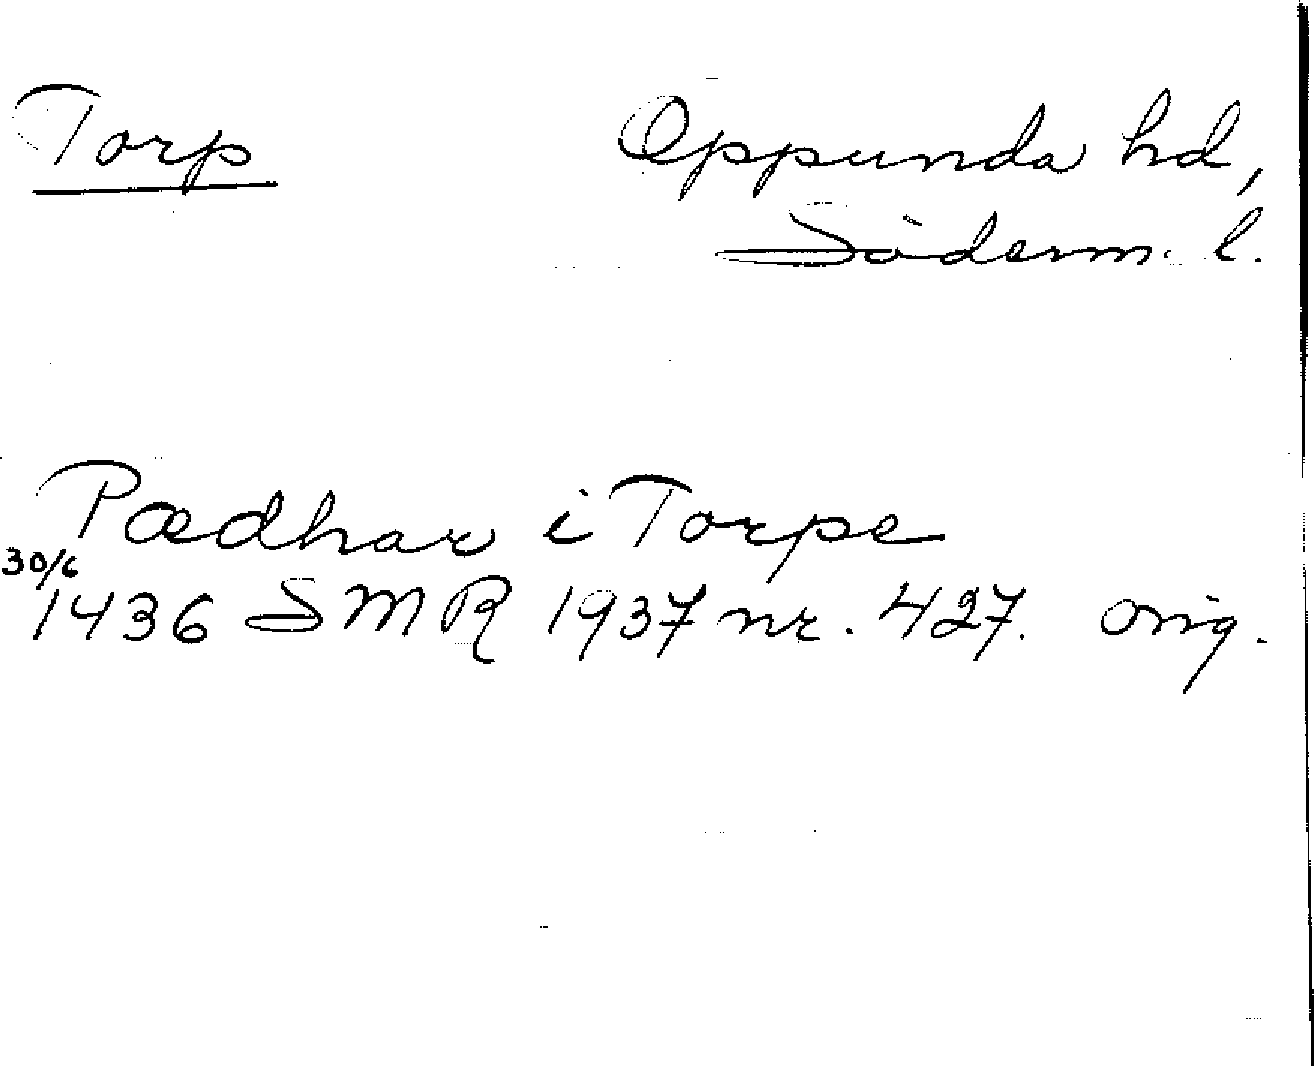 Torp
Oppunda hd,
Söderm. l.
Pædhar i Torpe
30/6
1436 SMR 1937 nr. 427. orig.